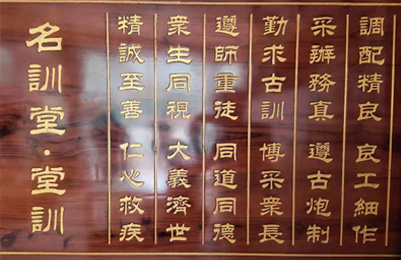 名訓堂·堂訓
精誠至善 仁心救疾
衆生同視 大義濟世
遵師重徒 同道同德
勤求古訓 博采衆長
采辦務真 遵古炮制
調配精良 良工細作